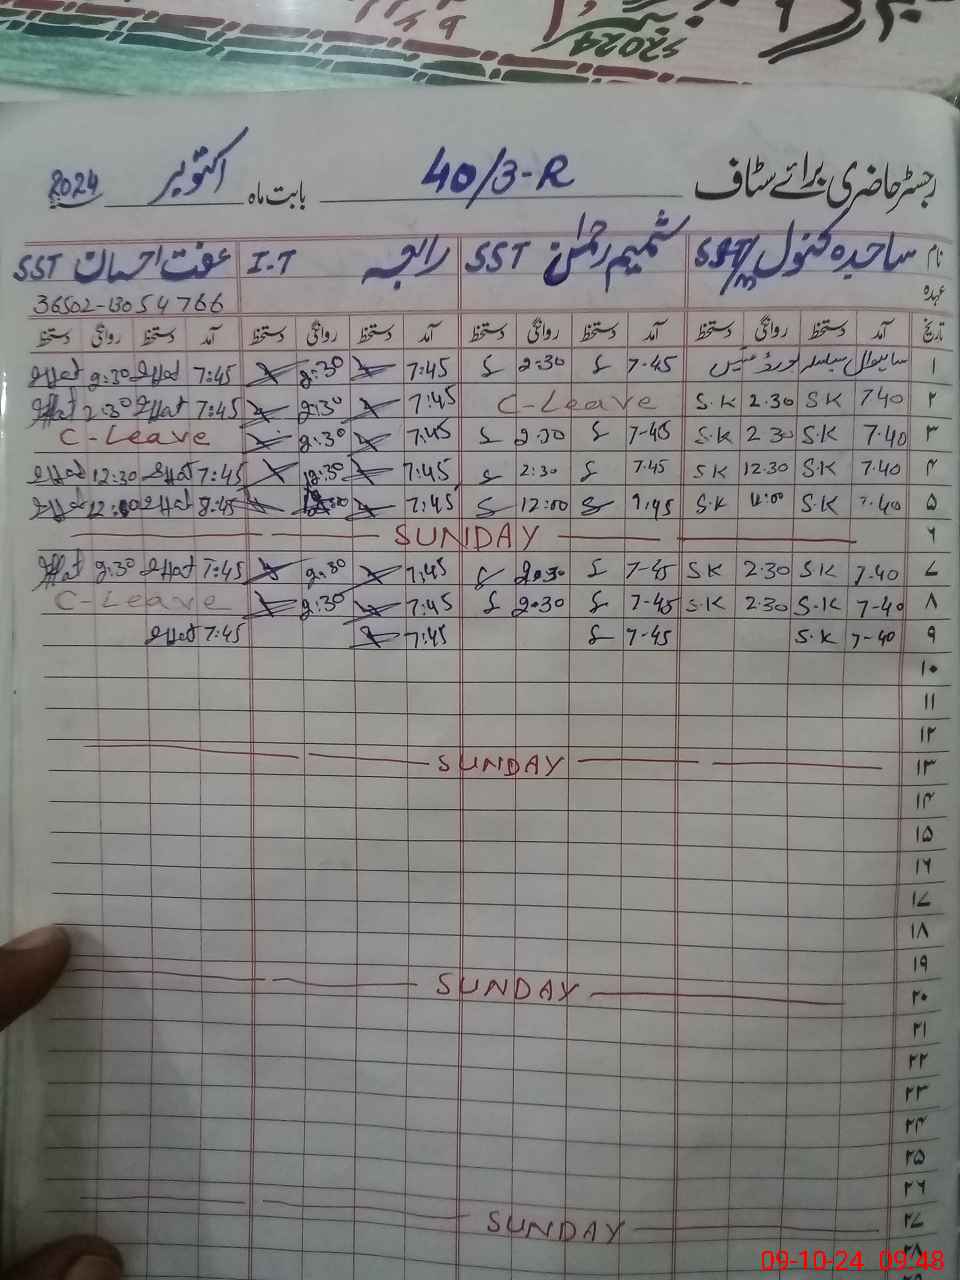 2024
رجسٹر حاضری برائے سٹاف 40/3-R بابت ماہ اکتوبر 2024
نام ساجدہ کنول SST شمیم رحمٰن SST رابعہ I.T عفت احسان SST
عہدہ 36502-13054766
تاریخ آمد دستخط روانگی دستخط آمد دستخط روانگی دستخط آمد دستخط روانگی دستخط آمد دستخط روانگی دستخط
۱ ساہیوال بورڈ میں 7-45 S 2:30 S 7:45 2:30 7:45 Iffat 2:30 Iffat
۲ 7.40 S.K 2.30 S.K C-Leave 7:45 2:30 7:45 Iffat 2:30 Iffat
۳ 7.40 S.K 2 30 S.K 7-45 S 2:30 S 7:45 2:30 C-Leave
۴ 7.40 S.K 12.30 S K 7.45 S 2:30 S 7:45 12:30 7:45 Iffat 12:30 Iffat
۵ 7.40 S.K S.K S 12:00 S 7:45 8:45 Iffat Iffat
۶ SUNDAY
۷ 7.40 S.K 2.30 S K 7-45 S 2.30 S 7:45 2:30 7:45 Iffat 2:30 Iffat
۸ 7-40 S.K 2.30 S.K 7-45 S 2.30 S 7:45 2:30 C-Leave
۹ 7-40 S.K 7-45 S 7:45 7:45 Iffat
۱۰
۱۱
۱۲
۱۳ SUNDAY
۱۴
۱۵
۱۶
۱۷
۱۸
۱۹
۲۰ SUNDAY
۲۱
۲۲
۲۳
۲۴
۲۵
۲۶
۲۷ SUNDAY
۲۸
09-10-24 09:48